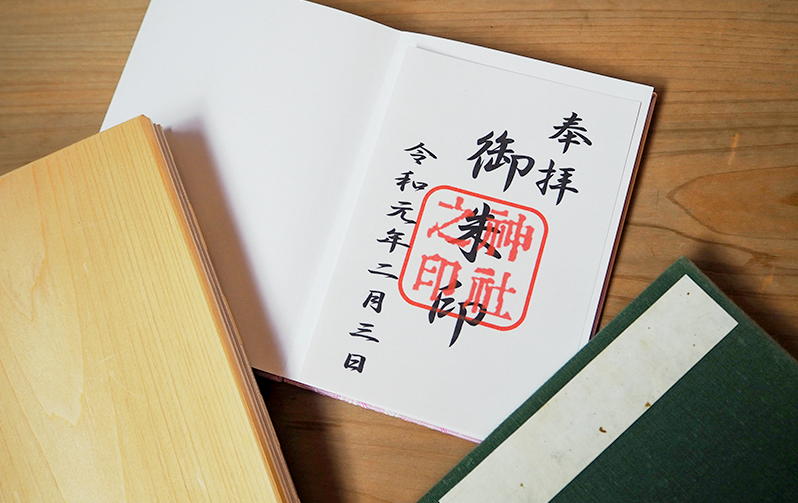 奉拝
御朱印
神社
之印
令和元年二月三日